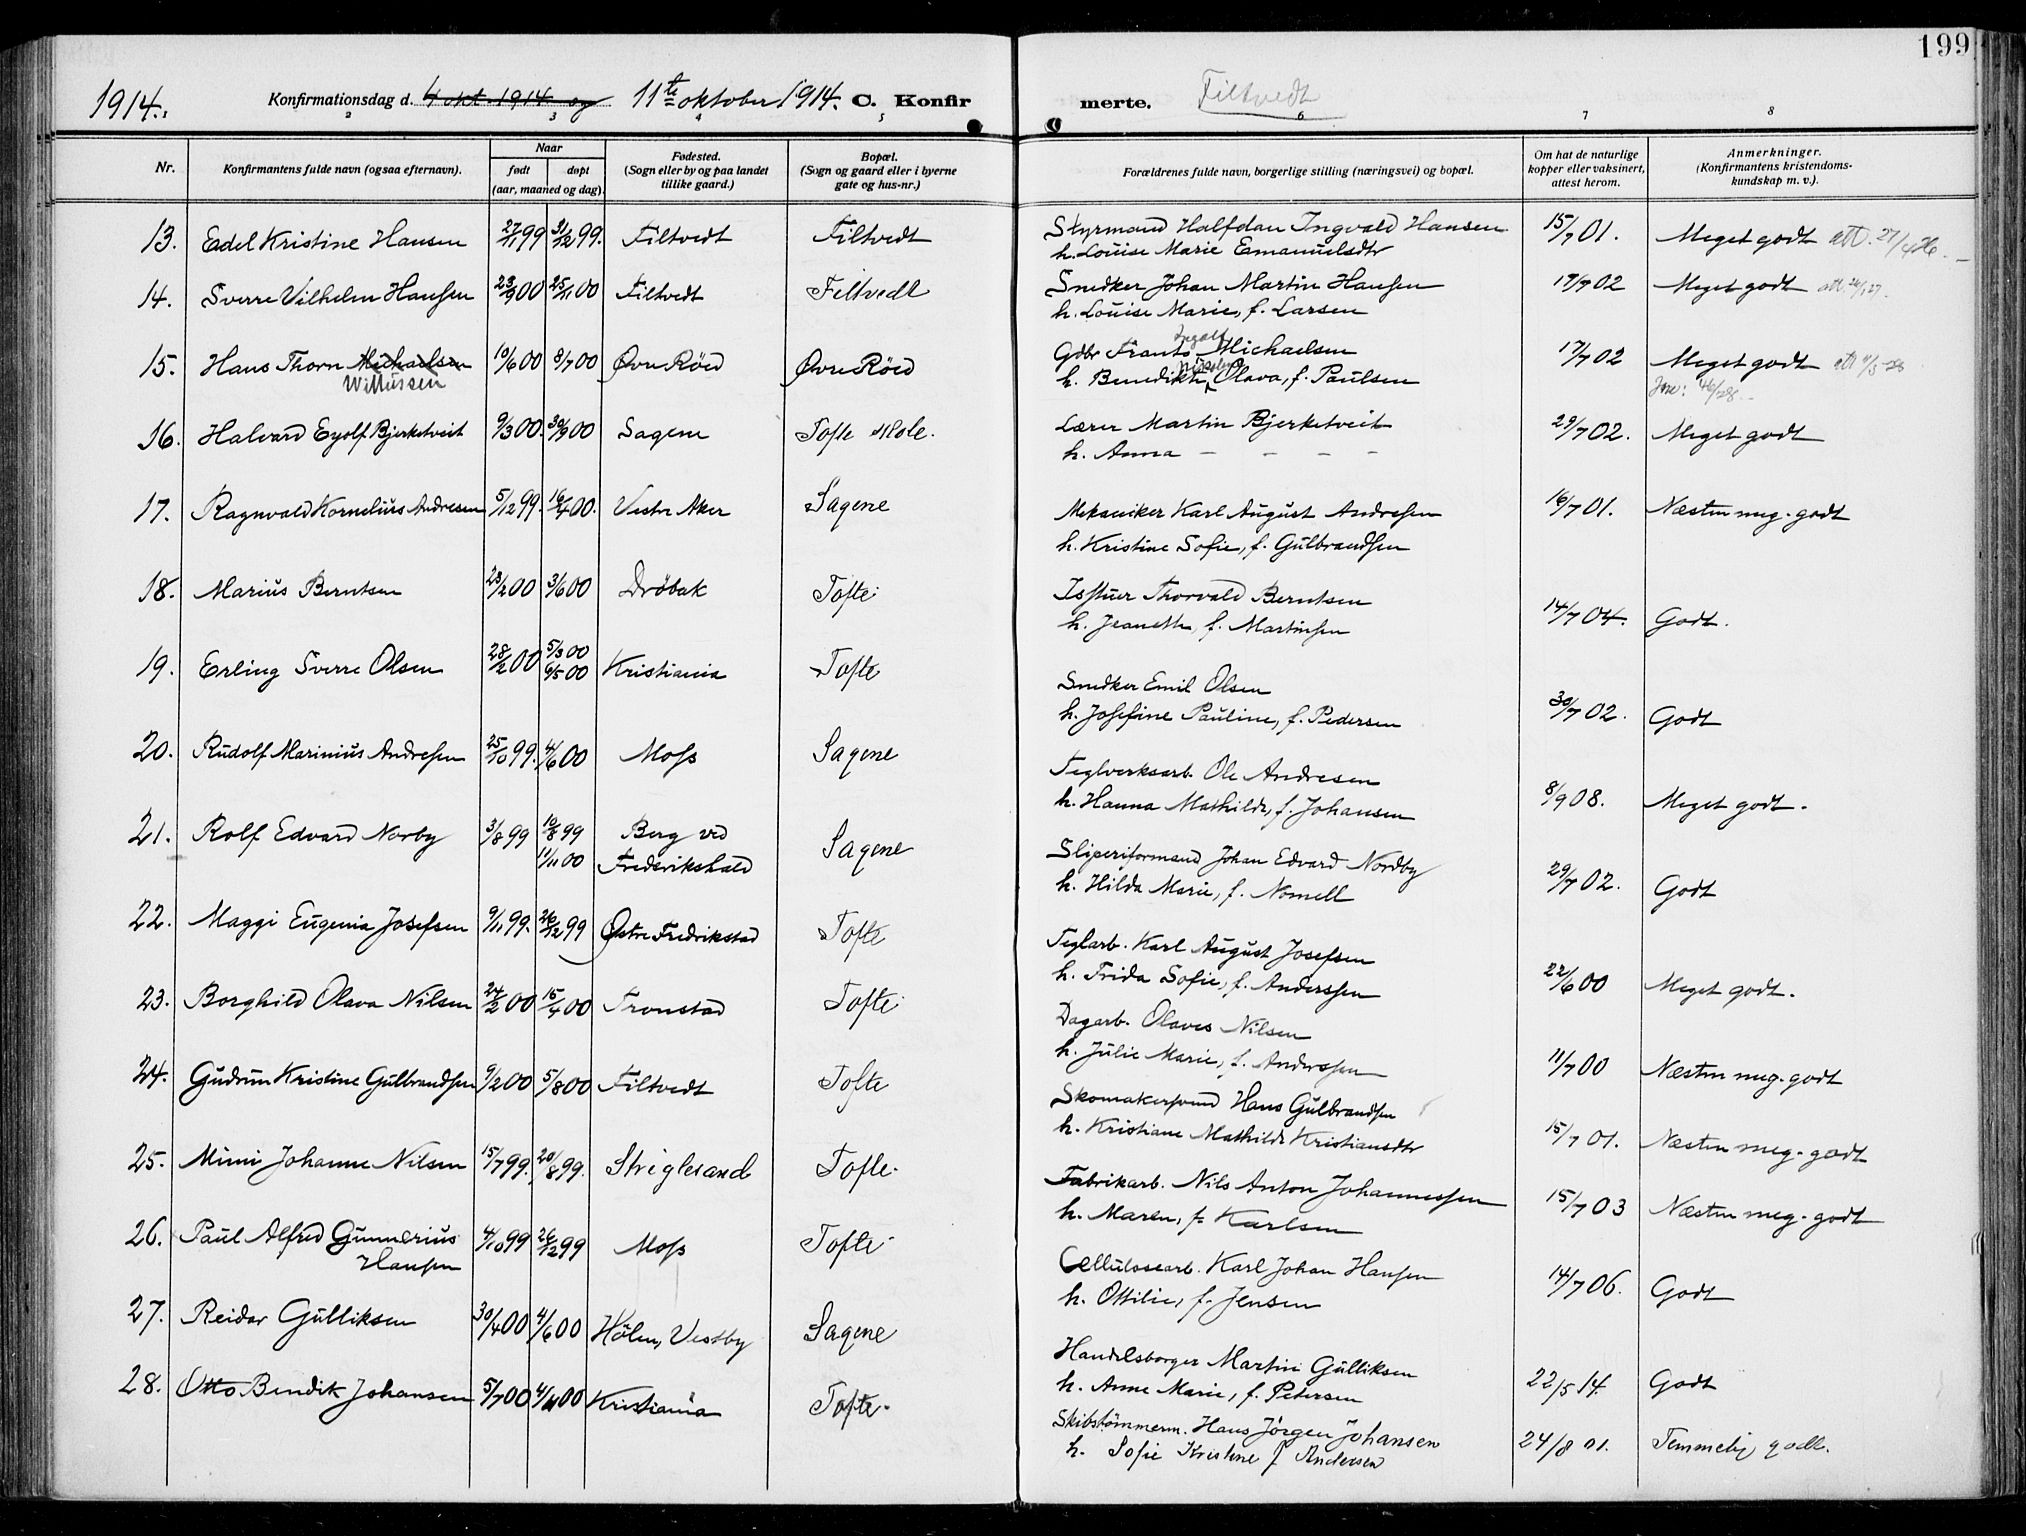 199
1914.
Konfirmationsdag d. 4 okt. 1914 og 11te oktober 1914. C. Konfirmerte. Filtvedt
2 3 4 5 6 7 8
Nr. Konfirmantens fulde navn (ogsaa efternavn). Naar født døpt (aar, maaned og dag). Fødested. (Sogn eller by og paa landet tillike gaard.) Bopæl. (Sogn og gaard eller i byerne gate og hus-nr.) Forældrenes fulde navn, borgerlige stilling (næringsvei) og bopæl. Om hat de naturlige kopper eller vaksinert, attest herom. Anmerkninger. (Konfirmantens kristendoms-kundskap m. v.).
13. Edel Kristine Hansen 27/11 99 31/12 99. Filtvedt Filtvedt Styrmand Halfdan Ingvald Hansen 15/7 01. Meget godt att. 27/4 26.
h. Louise Marie Emanuelsdtr
14. Sverre Vilhelm Hansen 23/9 00 25/11 00 Filtvedt Filtvedt Snedker Johan Martin Hansen 17/7 02 Meget godt
h. Louise Marie, f. Larsen
15. Hans Thorn Michaelsen 10/6 00 8/7 00 Øvre Røed Øvre Røed Gdbr Frants Michaelsen 17/7 02 Meget godt att 11/5-28
Willussen h. Benedikte Olava, f. Paulsen Jnr: 46/28.
16. Halvard Eyolf Bjerketveit 9/3 00. 30/9 00 Sagene Tofte skole. Lærer Martin Bjerketveit 29/7 02. Meget godt
h. Anna - - - -
17. Ragnvald Kornelius Andresen 5/12 99. 16/4 00. Vestre Aker Sagene Mekaniker Karl August Andresen 16/7 01. Næsten meg. godt
h. Kristine Sofie, f. Gulbrandsen
18. Marius Berntsen 23/2 00 3/6 00 Drøbak Tofte Thorvald Berntsen 14/7 04. Godt.
h. Jeanette, f. Martinsen
19. Erling Sverre Olsen 28/2 00 5/3 00 6/5 00 Kristiania Tofte Snedker Emil Olsen 30/7 02. Godt
h. Josefine Pauline, f. Pedersen
20. Rudolf Marinius Andresen 25/10 99. 4/6 00 Moss Sagene Teglverksarb. Ole Andresen 8/9 08. Meget godt.
h. Hanna Mathilde, f. Johansen
21. Rolf Edvard Norby 3/8 99 10/8 99 11/11 00 Berg ved Frederikshald Sagene Sliperiformand Johan Edvard Nordby 29/7 02. Godt
h. Hilda Marie, f. Nomell
22. Maggi Eugenia Josefsen 9/11 99. 26/12 99 Østre Fredrikstad Tofte Teglarb. Karl August Josefsen 22/6 00 Meget godt.
h. Frida Sofie, f. Anderssen
23. Borghild Olava Nilsen 24/2 00 15/4 00 Tronstad Tofte Dagarb. Olaves Nilsen 11/7 00 Næsten meg. godt
h. Julie Marie, f. Anderssen
24. Gudrun Kristine Gulbrandsen 9/2 00 5/8 00 Filtvedt Tofte Skomakersvend Hans Gulbrandsen 15/7 01. Næsten meg. godt
h. Kristiane Mathilde Kristiansdtr
25. Mimi Johanne Nilsen 15/7 99. 20/8 99. Striglesand Tofte. Fabrikarb. Nils Anton Johannessen 15/7 03 Næsten meg. godt
h. Maren, f. Karlsen
26. Paul Alfred Gunnerius 4/10 99 26/12 99 Moss Tofte Cellulosearb. Karl Johan Hansen 14/7 06. Godt
Hansen h. Ottilie, f. Jensen
27. Reidar Gulliksen 30/4 00 4/6 00 Hølen, Vestby Sagene Handelsborger Martin Gulliksen 22/5 14. Godt
h. Anne Marie, f. Petersen
28. Otto Bendik Johansen 5/7 00 4/11 00 Kristiania Tofte. Skibstømmerm. Hans Jørgen Johansen 24/8 01. Temmelig godt.
h. Sofie Kristine f Andersen